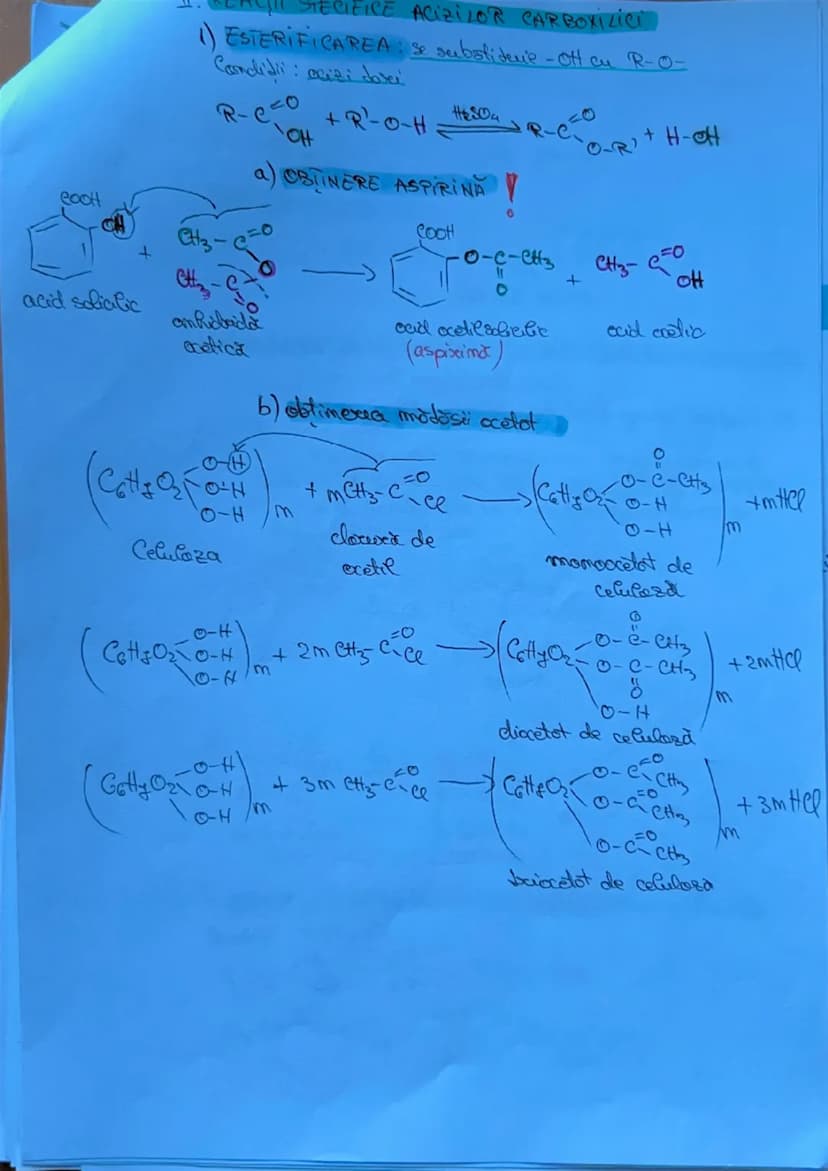 II. REACȚII SPECIFICE ACIZILOR CARBOXILICI
1) ESTERIFICAREA: se substituie -OH cu R-O-
Condiții: acizi tari
R-C=O OH + R'-O-H H2SO4 R-C=O O-R' + H-OH
a) OBȚINERE ASPIRINĂ !
COOH OH + CH3-C=O O CH3-C=O → COOH O-C-CH3 O + CH3-C=O OH
acid salicilic anhidridă acetică acid acetilsalicilic (aspirină) acid acetic
b) obținerea mătăsii acetat
(C6H7O2 O-H O-H O-H)n + nCH3-C=O Cl → (C6H7O2 O-C-CH3 O O-H O-H)n + nHCl
Celuloza clorură de acetil monoacetat de celuloză
(C6H7O2 O-H O-H O-H)n + 2n CH3-C=O Cl → (C6H7O2 O-C-CH3 O O-C-CH3 O O-H)n + 2nHCl
diacetat de celuloză
(C6H7O2 O-H O-H O-H)n + 3n CH3-C=O Cl → (C6H7O2 O-C=O CH3 O-C=O CH3 O-C=O CH3)n + 3nHCl
triacetat de celuloză